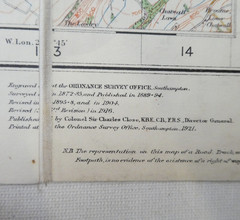 The Lawley
Chatwall
Lawn
W. Lon. 2° 45'
13
14
Engraved at the ORDNANCE SURVEY OFFICE, Southampton.
Surveyed in 1872-83 and Published in 1889-94.
Revised in 1895-8, and in 1904.
Revised Revision) in 1916.
Published by Colonel Sir Charles Close, K.B.E. C.B., F.R.S., Director General.
Printed at the Ordnance Survey Office, Southampton, 1921.
N.B. The representation on this map of a Road, Track or
Footpath, is no evidence of the existence of a right of way